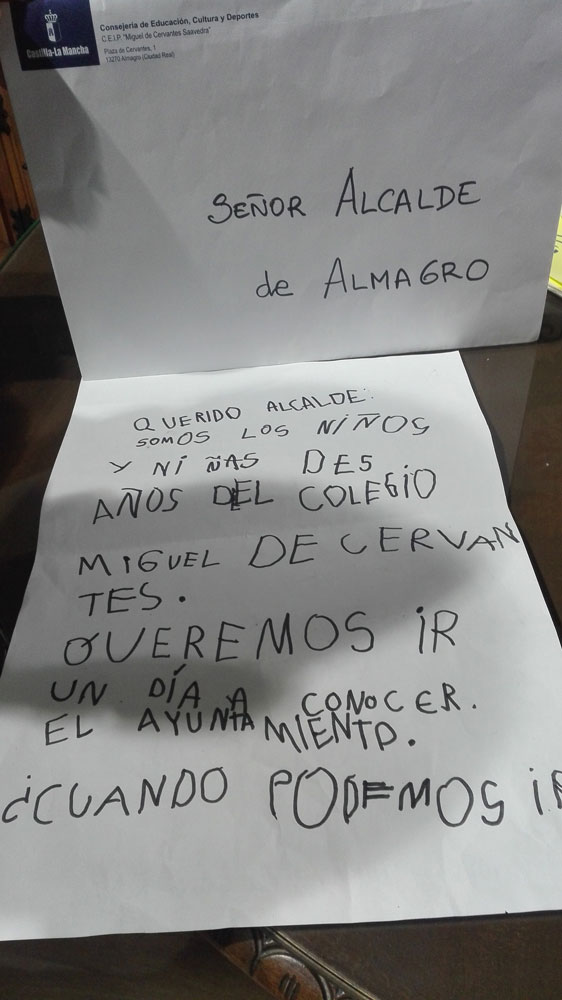 Castilla-La Mancha
Consejería de Educación, Cultura y Deportes
C.E.I.P. "Miguel de Cervantes Saavedra"
Plaza de Cervantes, 1
13270 Almagro (Ciudad Real)
SEÑOR ALCALDE
de ALMAGRO
QUERIDO ALCALDE:
SOMOS LOS NIÑOS
Y NIÑAS DE 5
AÑOS DEL COLEGIO
MIGUEL DE CERVAN
TES.
QUEREMOS IR
UN DÍA A CONOCER.
EL AYUNTA MIENTO.
¿CUANDO PODEMOS IR